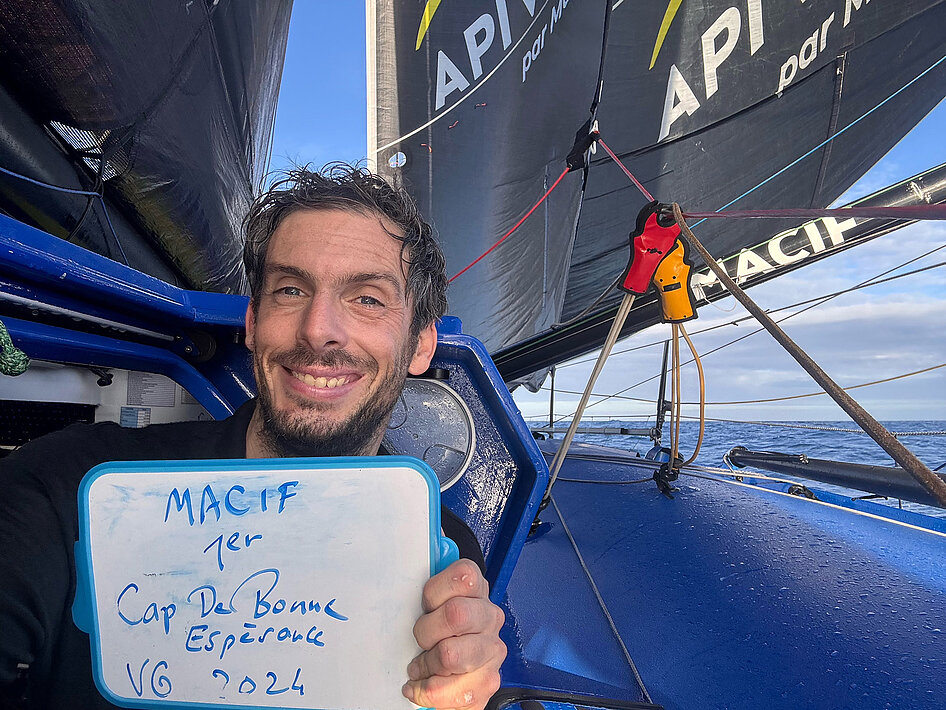 API
par
API
par M
MACIF
MACIF
1er
Cap De Bonne
Espérance
VG 2024